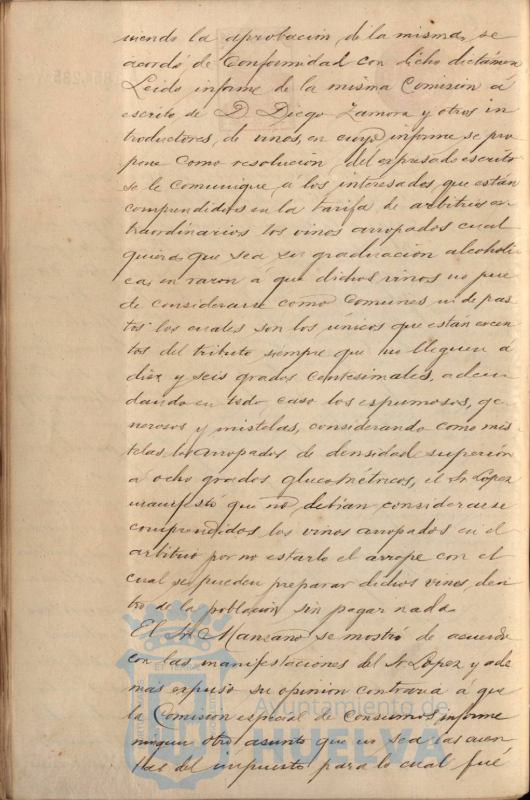 niendo la aprobación de la misma, se
acordó de Conformidad con dicho dictámen
Leido informe de la misma Comision á
escrito de D. Diego Zamora y otros in
troductores, de vinos, en cuyo informe se pro
pone como resolucion del expresado escrito
se le comunique á los interesados, que están
comprendidos en la tarifa de arbitrios ex
traordinarios los vinos arropados cual
quiera que sea su graduación alcoholi
ca, en razon á que dichos vinos no pue
de considerarse como comunes ni de pas
tos los cuales son los únicos que están exen
tos del tributo siempre que no lleguen á
diez y seis grados centesimales, adeu
dando en todo caso los espumosos, ge
nerosos y mistelas, considerando como mis
telas, los arropados de densidad superior
á ocho grados glucométricos, el Sr Lopez
manifestó que no debian considerarse
comprendidos, los vinos arropados en el
arbitrio por no estarlo el arrope con el
cual se pueden preparar dichos vinos, den
tro de la poblacion sin pagar nada.
El Sr Manzano se mostró de acuerdo
con las manifestaciones del Sr Lopez y ade
mas expuso su opinion contraria á que
la Comision especial de Consumos, informe
ningun otro asunto que no sea las cuen
tas del impuesto para lo cual fué
Ayuntamiento de
HUELVA